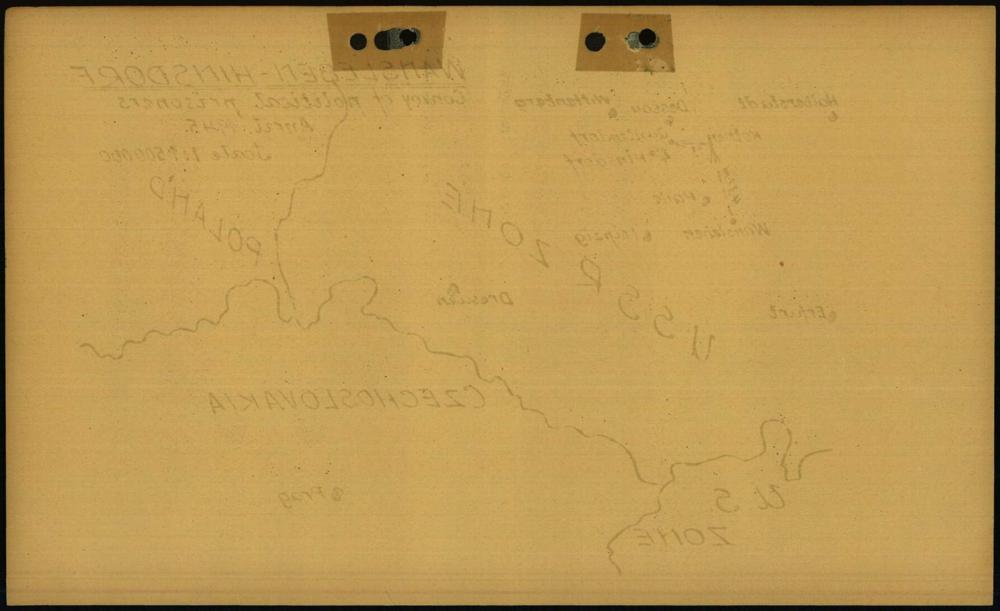 WANSLEBEN-HINSDORF
Convoy of political prisoners
April 1945.
Scale 1:1500000
Halberstadt
Dessau
Wittenberg
Köthen
Hinsdorf
Halle
Wansleben
Leipzig
Erfurt
Dresden
USSR ZONE
POLAND
CZECHOSLOVAKIA
Prag
U.S.
ZONE